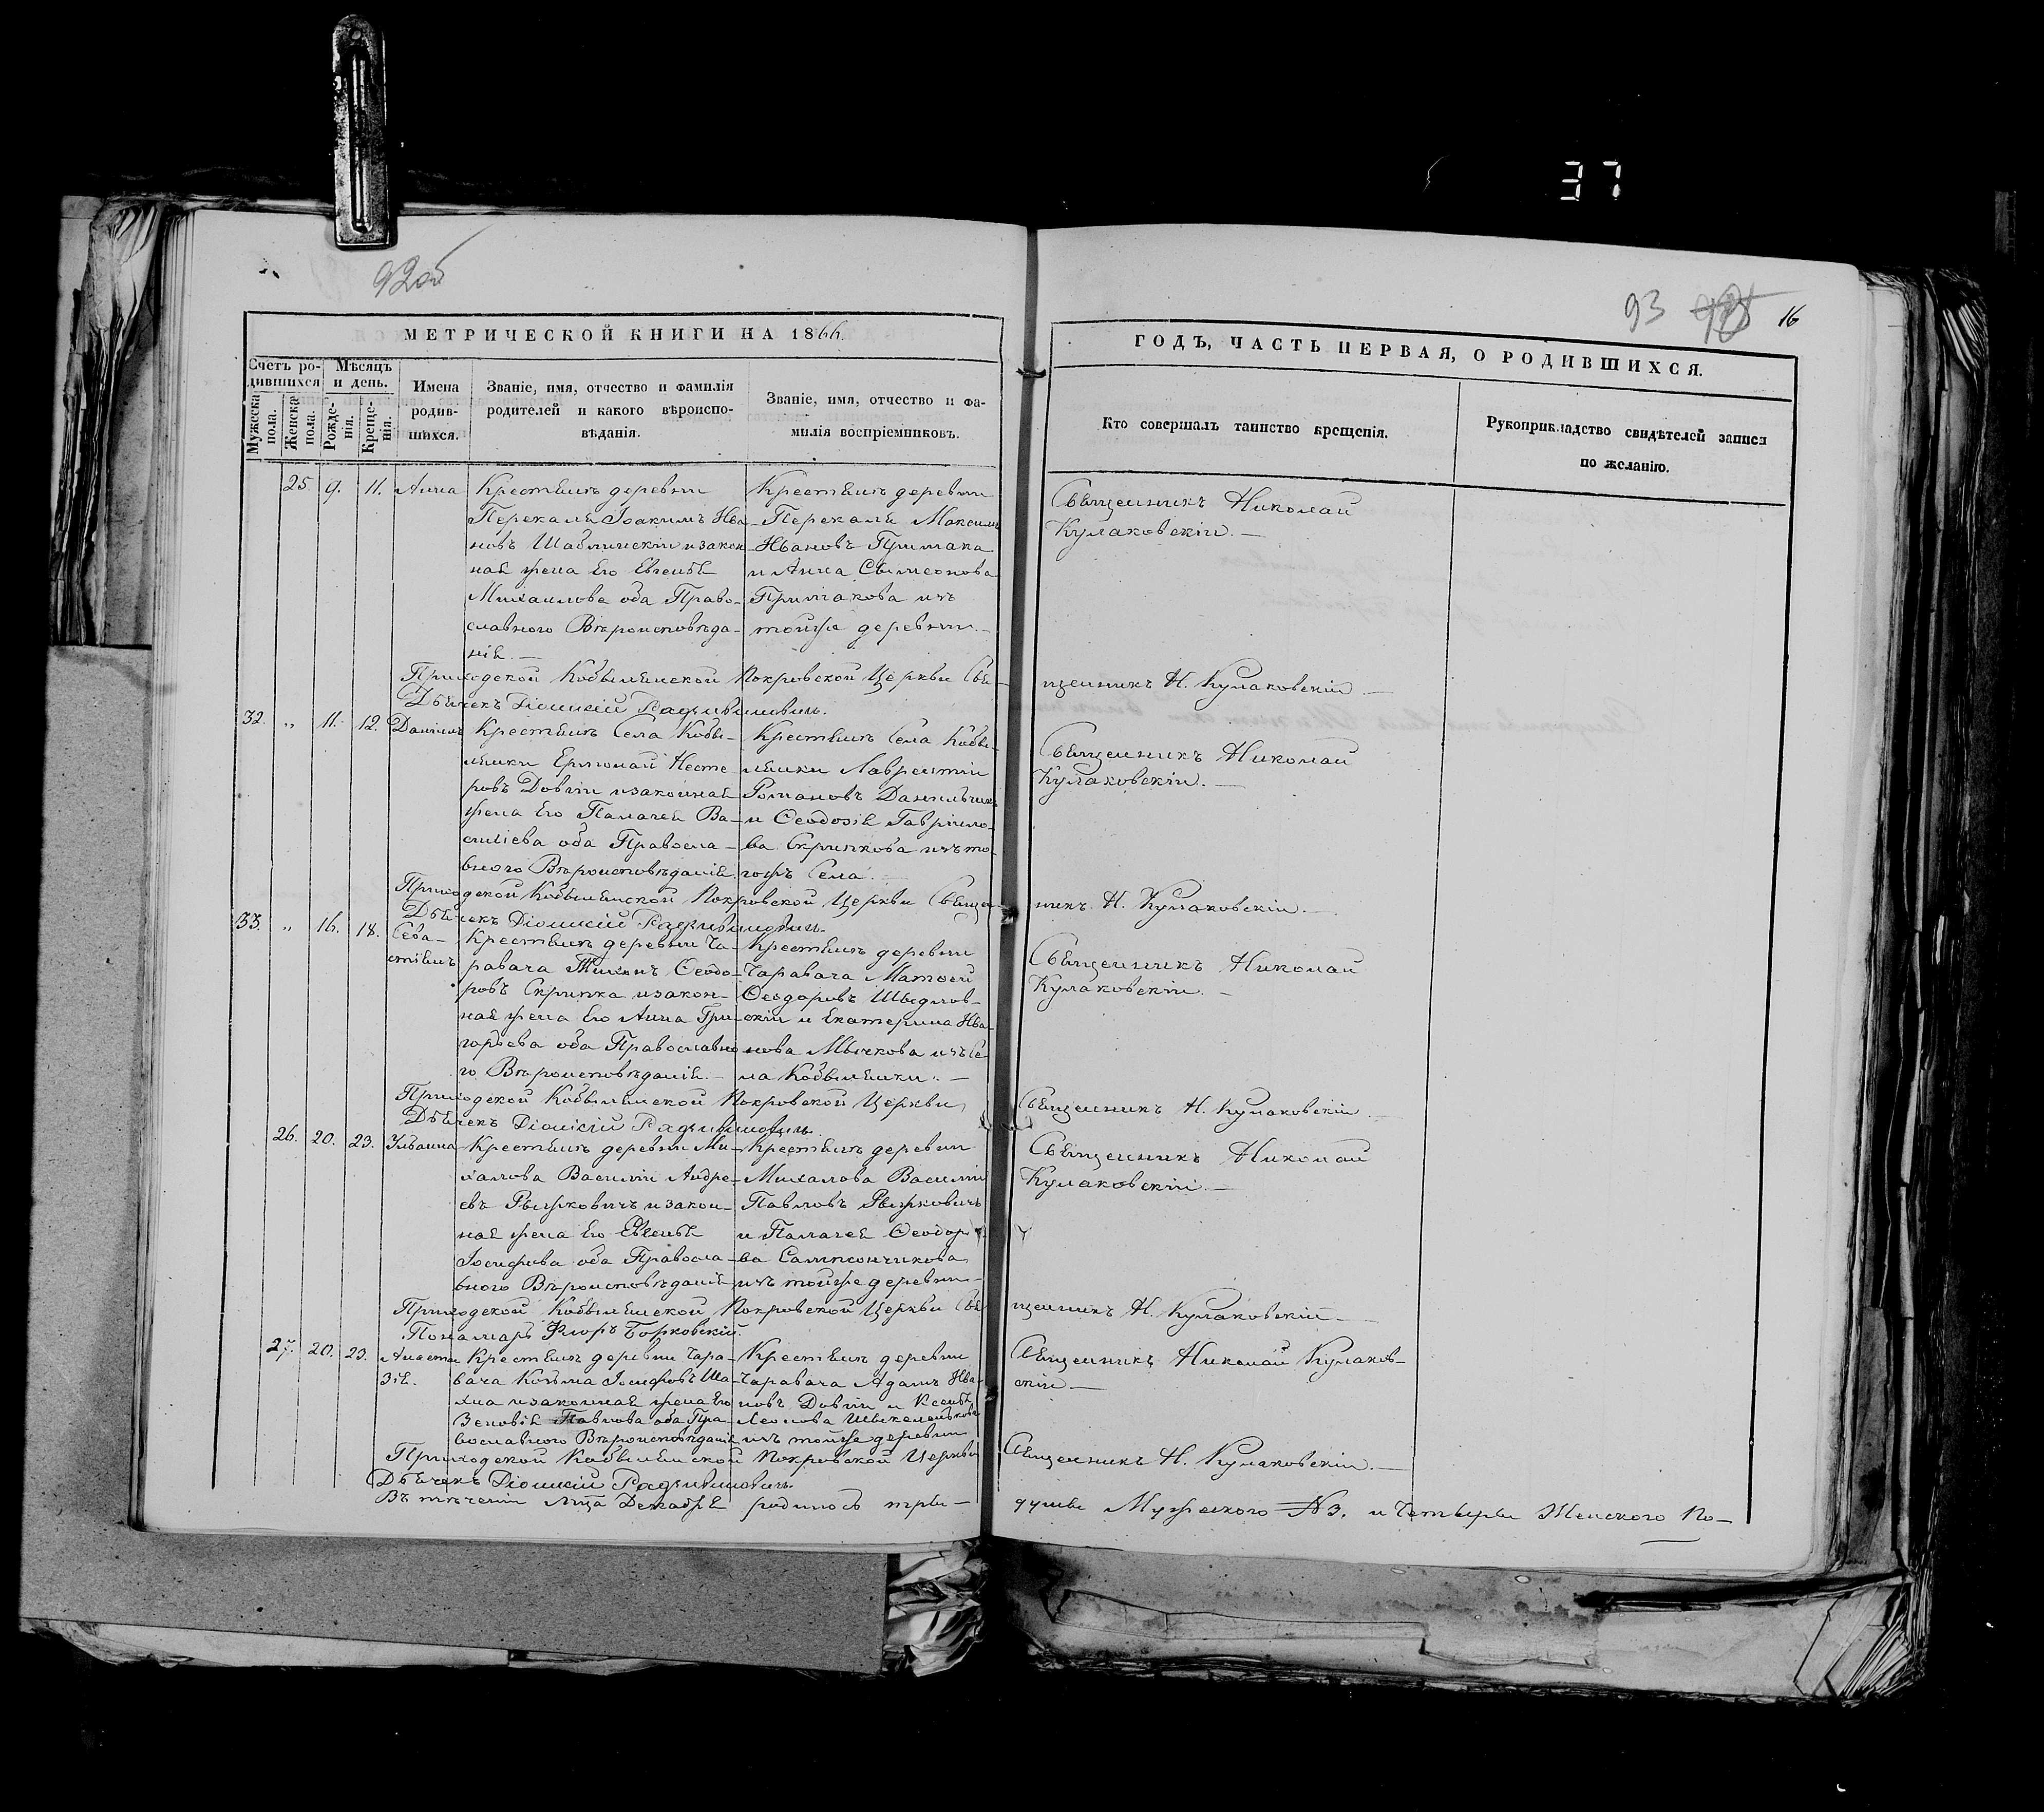 37
92об
93
16
МЕТРИЧЕСКОЙ КНИГИ НА 1866.
Счетъ ро-
дившихся
Мужеска
пола.
Женска
пола.
Мѣсяцъ
и день.
Рожде-
нія.
Креще-
нія.
Имена
родив-
шихся.
Званіе, имя, отчество и фамилія
родителей и какого вѣроиспо-
вѣданія.
Званіе, имя, отчество и фа-
милія воспріемниковъ.
ГОДЪ, ЧАСТЬ ПЕРВАЯ, О РОДИВШИХСЯ.
Кто совершалъ таинство крещенія.
Рукоприкладство свидѣтелей записи
по желанію.
25. 9. 11. Анна
Крестьянъ деревни
Перекаля Іоакимъ Ива-
новъ Шаблинскій и закон-
ная жена его Евгенія
Михаилова оба Право-
славнаго Вѣроисповѣда-
нія. —
Крестьянъ деревни
Перекаля Максимъ
Ивановъ Примака
и Анна Сѵмеонова
Примакова изъ
тойже деревни. —
Священникъ Николай
Кулаковскій. —
Приходской Кобыльнской Покровской Церкви Свя-
щенникъ Н. Кулаковскій —
Дьячекъ Діонисій Радзивиловичъ.
32. „ 11. 12. Даніилъ
Крестьянъ Села Кобы-
льники Ермолай Несте-
ровъ Довгій и законная
жена его Палагея Ва-
силіева оба Правосла-
внаго Вѣроисповѣданія.
Крестьянъ Села Кобы-
льники Лаврентій
Романовъ Данильчикъ
и Ѳеодосія Гавріило-
ва Скрипкова изъ то-
гожъ Села. —
Священникъ Николай
Кулаковскій. —
Приходской Кобыльнской Покровской Церкви Священ-
никъ Н. Кулаковскій. —
Дьячекъ Діонисій Радзивиловичъ.
33. „ 16. 18. Сева-
стіанъ
Крестьянъ деревни Ча-
равача Тихонъ Ѳеодо-
ровъ Скрипка и закон-
ная жена его Анна Гри-
горьева оба Православна-
го Вѣроисповѣданія. —
Крестьянъ деревни
Чаравача Матѳей
Ѳеодоровъ
скій и Екатерина Ива-
нова Мычкова изъ Се-
ла Кобыльники. —
Священникъ Николай
Кулаковскій. —
Приходской Кобыльнской Покровской Церкви
Священникъ Н. Кулаковскій. —
Дьячекъ Діонисій Радзивиловичъ.
26. 20. 23. Іуліанна
Крестьянъ деревни Ми-
халова Василій Андре-
евъ Рыжковичъ и закон-
ная жена его Евгенія
Іосифова оба Правосла-
внаго Вѣроисповѣданія
Крестьянъ деревни
Михалова Василій
Павловъ Рыжковичъ
и Палагея Ѳеодоро-
ва Сампсончикова
изъ тойже деревни —
Священникъ Николай
Кулаковскій. —
Приходской Кобыльнской Покровской Церкви Свя-
щенникъ Н. Кулаковскій —
Понамарь Флоръ Борковскій.
27. 20. 23. Анаста-
зія.
Крестьянъ деревни Чара-
вача Козьма Іосифовъ Ша-
ха и законная жена его
Зеновія Павлова оба Пра-
вославнаго Вѣроисповѣданія
Крестьянъ деревни
Чаравача Адамъ Ива-
новъ Довгій и Ксенія
Леонова
изъ тойже деревни
Священникъ Николай Кулаков-
скій —
Приходской Кобыльнской Покровской Церкви
Священникъ Н. Кулаковскій. —
Дьячекъ Діонисій Радзивиловичъ.
Въ теченіи М-ца Декабря родилось три-
душы Мужескаго № 3. и Четыры Женскаго По-